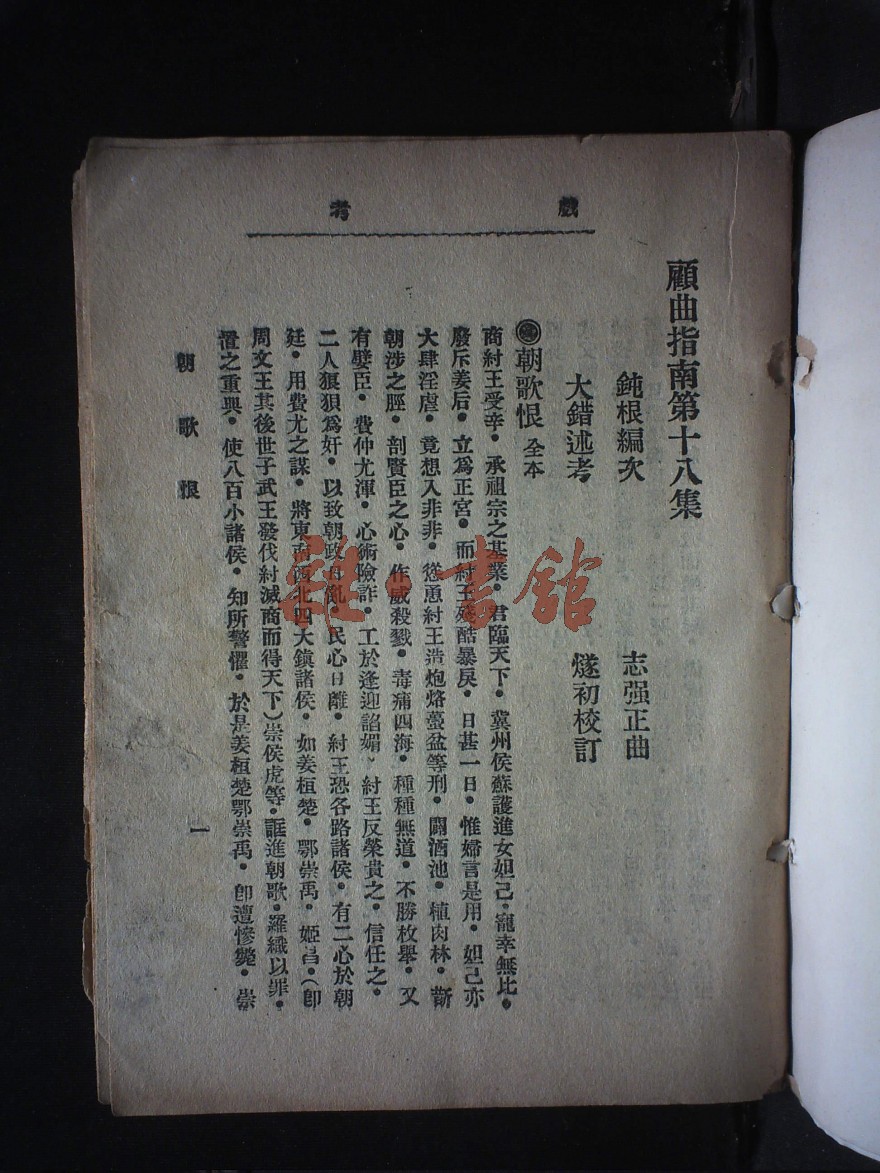 戲考
顧曲指南第十八集
鈍根編次
志强正曲
大錯述考
燧初校訂
朝歌恨 全本
商紂王受辛。承祖宗之基業。君臨天下。冀州侯蘇護進女妲己。寵幸無比。
廢斥姜后。立爲正宮。而紂王殘酷暴戾。日甚一日。惟婦言是用。妲己亦
大肆淫虐。竟想入非非。慫恿紂王造炮烙蠆盆等刑。闢酒池。植肉林。斮
朝涉之脛。剖賢臣之心。作威殺戮。毒痡四海。種種無道。不勝枚舉。又
有嬖臣。費仲尤渾。心術險詐。工於逢迎諂媚。紂王反榮貴之。信任之。
二人狼狽爲奸。以致朝政日亂。民心日離。紂王恐各路諸侯。有二心於朝
廷。用費尤之謀。將東南西北四大鎮諸侯。如姜桓楚。鄂崇禹。姬昌。(卽
周文王其後世子武王發伐紂滅商而得天下)崇侯虎等。誆進朝歌。羅織以罪。
置之重典。使八百小諸侯。知所警懼。於是姜桓楚鄂崇禹。卽遭慘斃。崇
朝歌恨
一
雜·書館